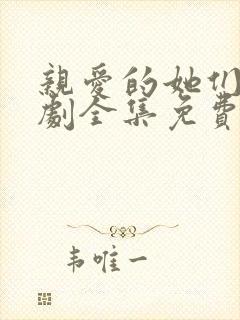 親愛的她们
劇全集免費
韦唯一